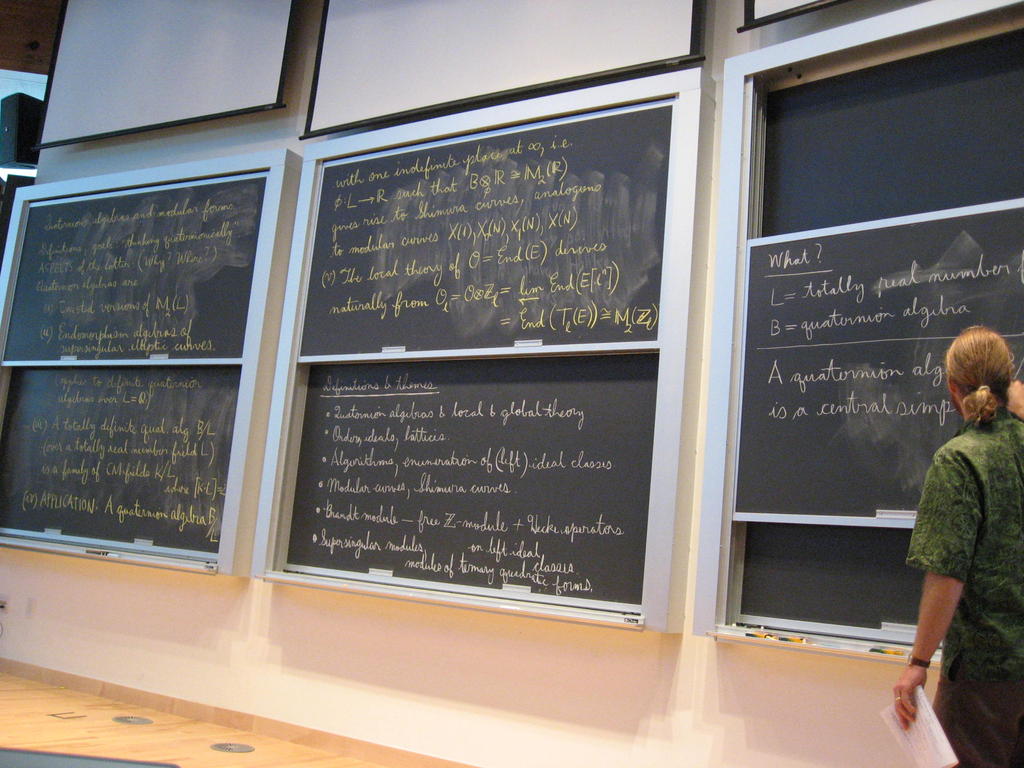 Quaternion algebras and modular forms.
Definitions, goals: thinking quaternionically
ASPECTS of the latter (Why? Where?)
Quaternion algebras are
(i) Twisted versions of M₂(L)
(ii) Endomorphism algebras of
supersingular elliptic curves.
(applies to definite quaternion
algebras over L=Q)
(iii) A totally definite quat. alg B/L
(over a totally real number field L)
is a family of CM fields K/L
where [K:L]=2
(iv) APPLICATION: A quaternion algebra B/L
with one indefinite place at ∞, i.e.
φ: L → ℝ such that B⊗ℝ ≅ M₂(ℝ)
gives rise to Shimura curves, analogous
to modular curves X(1), X₀(N), X₁(N), X(N)
(v) The local theory of O = End(E) derives
naturally from O_ℓ = O⊗ℤ_ℓ = lim End(E[ℓⁿ])
= End(T_ℓ(E)) ≅ M₂(ℤ_ℓ)
Definitions & themes
• Quaternion algebras & local & global theory
• Orders, ideals, lattices.
• Algorithms, enumeration of (left) ideal classes
• Modular curves, Shimura curves.
• Brandt module — free ℤ-module + Hecke operators
on left ideal
classes
• Supersingular modules
modules of ternary quadratic forms.
What?
L = totally real number
B = quaternion algebra
A quaternion alg
is a central simp